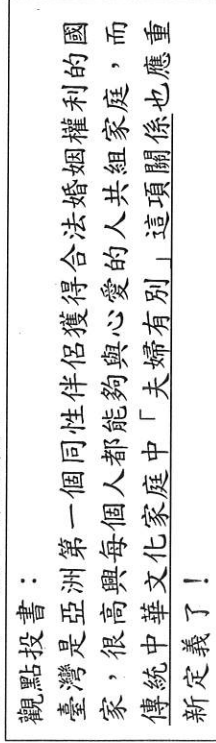 觀點投書：
臺灣是亞洲第一個同性伴侶獲得合法婚姻權利的國
家，很高興每個人都能夠與心愛的人共組家庭，而
傳統中華文化家庭中「夫婦有別」這項關係也應重
新定義了！